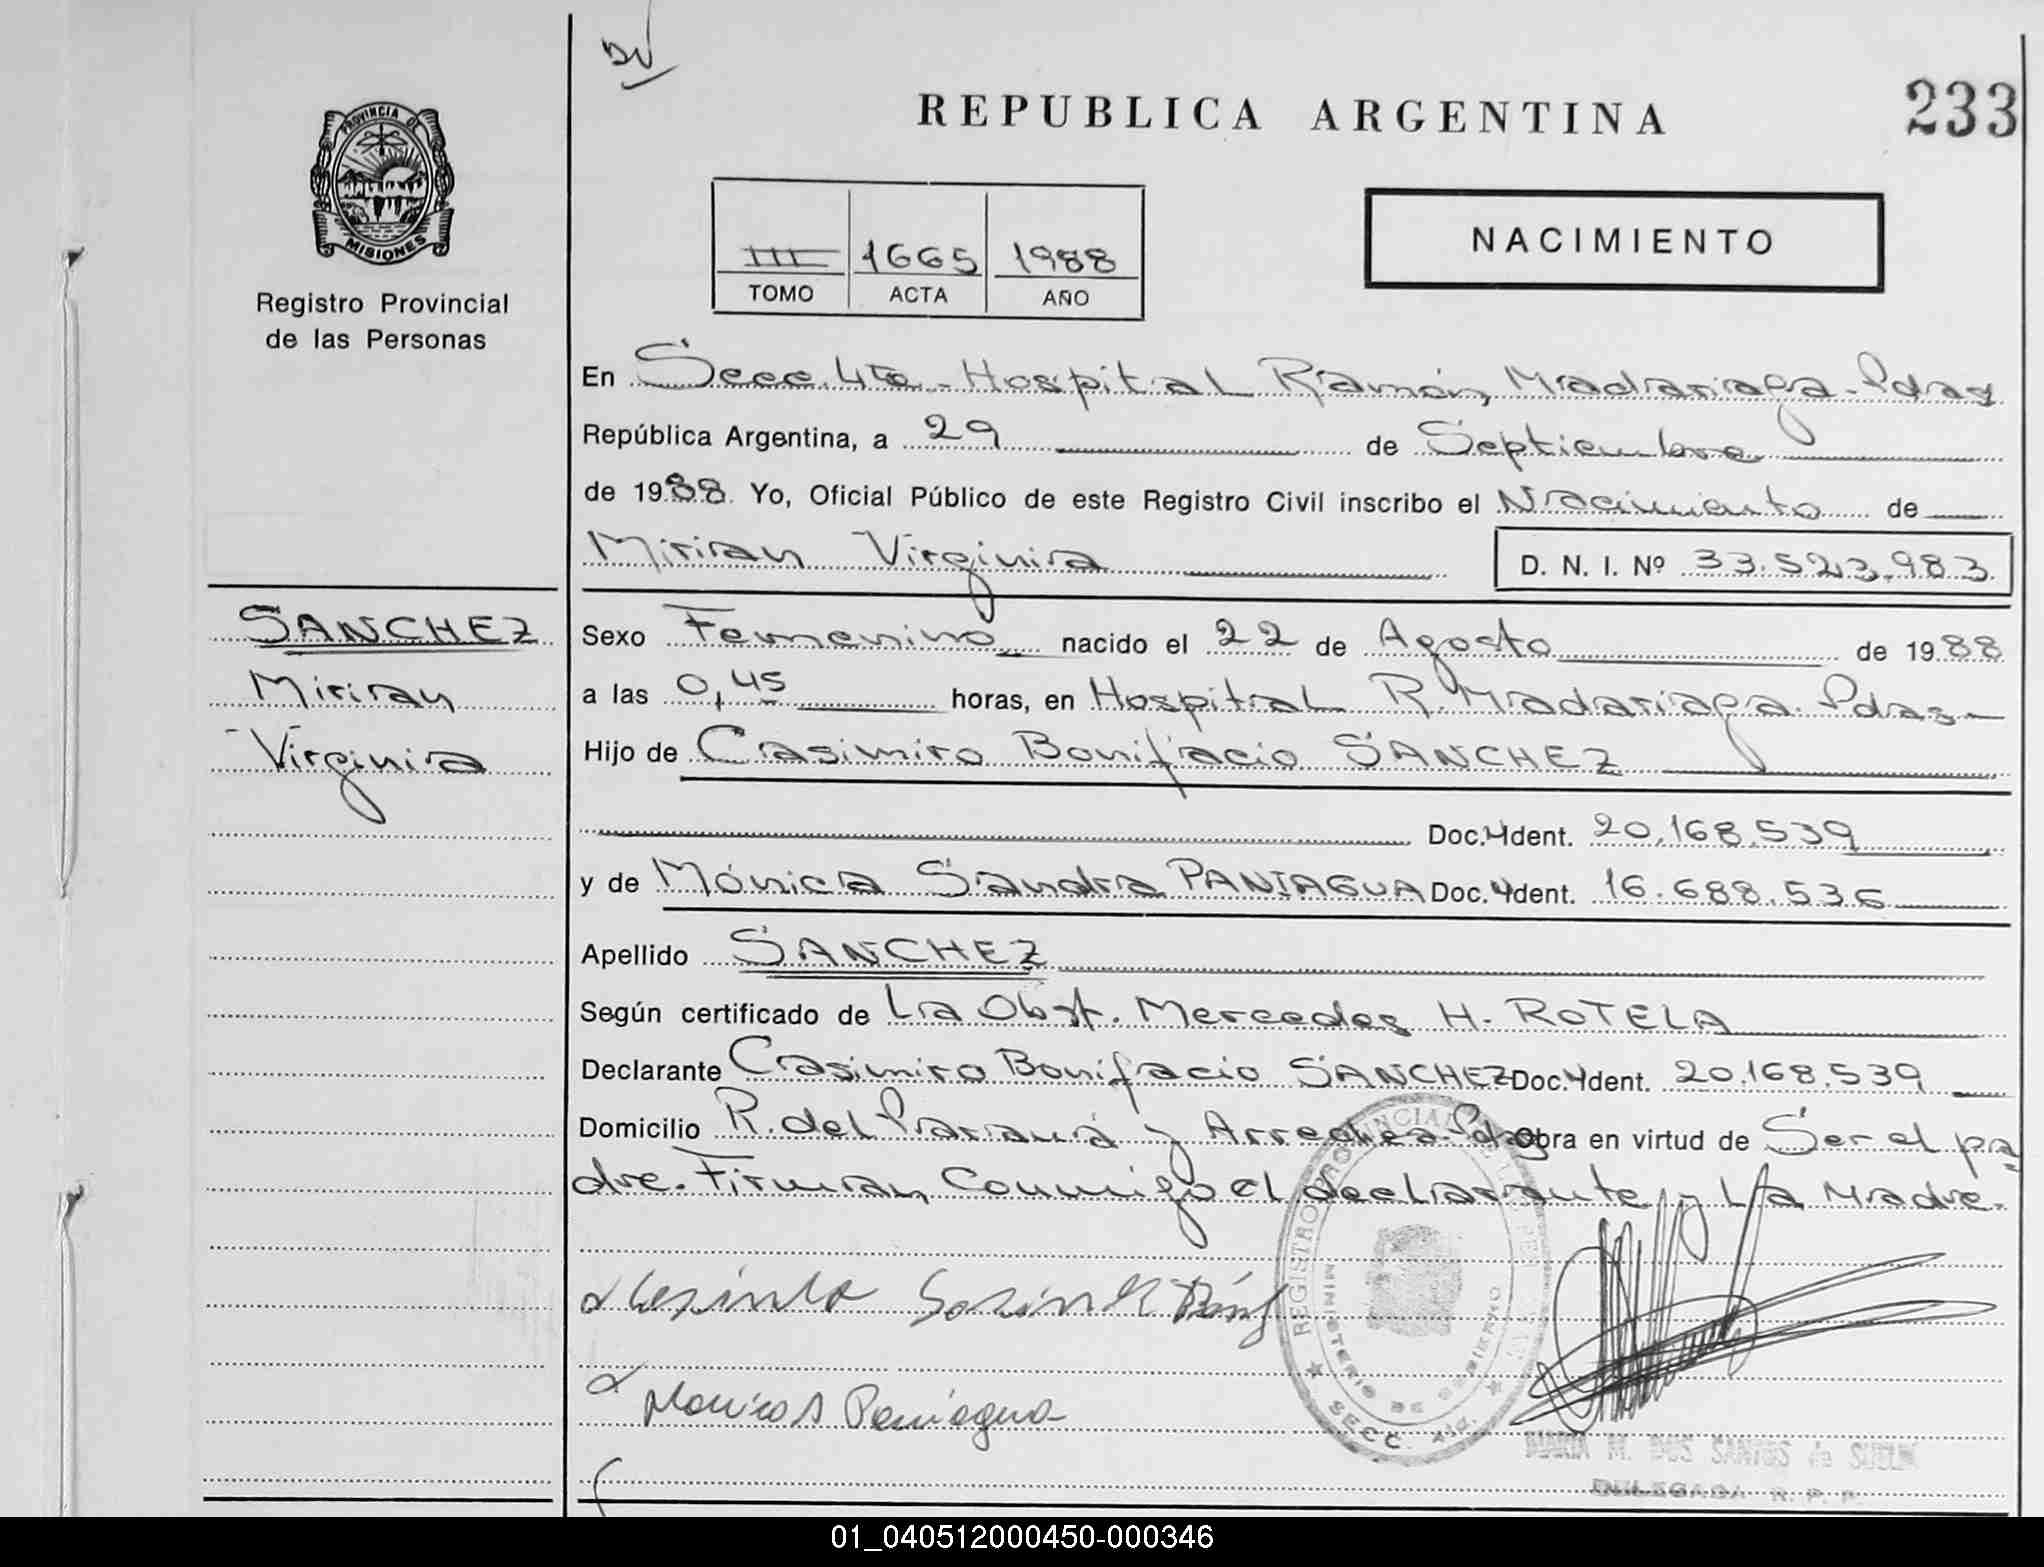 233
REPUBLICA ARGENTINA
PROVINCIA DE
MISIONES
Registro Provincial
de las Personas
III 1665 1988
TOMO ACTA AÑO
NACIMIENTO
En Secc. 4ta - Hospital Ramón Madariaga - Pdas
República Argentina, a 29 de Septiembre
de 1988. Yo, Oficial Público de este Registro Civil inscribo el Nacimiento de
Mirian Virginia D. N. I. Nº 33.523.983
SANCHEZ
Mirian
Virginia
Sexo Femenino nacido el 22 de Agosto de 1988
a las 0,45 horas, en Hospital R. Madariaga. Pdas-
Hijo de Casimiro Bonifacio SANCHEZ
Doc. Ident. 20.168.539
y de Mónica Sandra PANIAGUA Doc. Ident. 16.688.536
Apellido SANCHEZ
Según certificado de La Obst. Mercedes H. ROTELA
Declarante Casimiro Bonifacio SANCHEZ Doc. Ident. 20.168.539
Domicilio R. del Paraná y Arrechea. Pdas Obra en virtud de Ser el pa
dre. Firman Conmigo el declarante y La Madre.
Monica S Paniagua
REGISTRO PROVINCIAL DE LAS PERSONAS
MINISTERIO DE GOBIERNO
SECC. 4ta.
MARIA M. DOS SANTOS de
DELEGADA R. P. P.
01_040512000450-000346